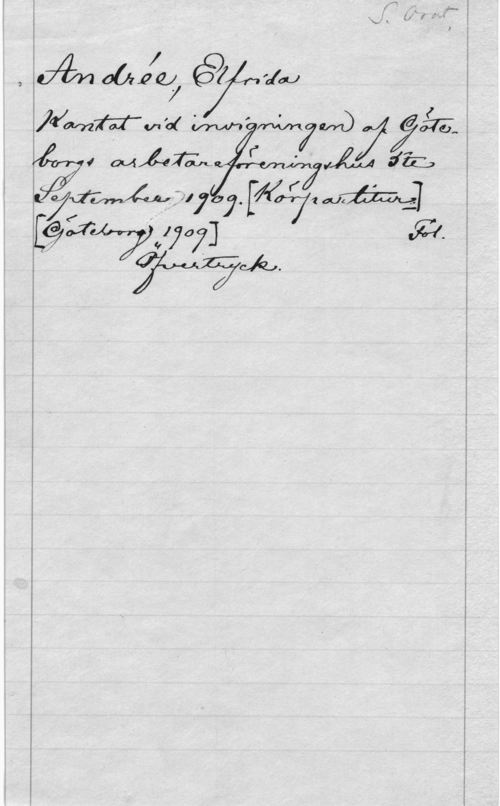 S. Orat,
Andrée, Elfrida
Kantat vid invigningen af Göte-
borgs arbetareföreningshus 5te
September 1909. [Körpartitur]
[Göteborg 1909] Fol.
Öfvertryck.